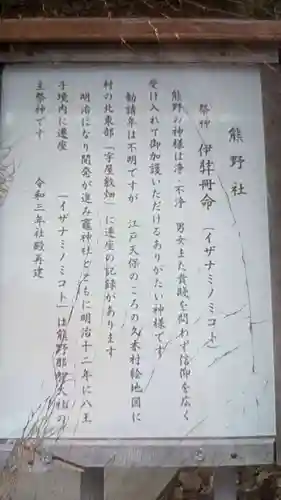 熊野社
祭神 伊弉冊命 (イザナミノミコト)
熊野の神様は浄・不浄 男女また貴賎を問わず信仰を広く
受け入れて御加護いただけるありがたい神様です
勧請年は不明ですが 江戸天保のころの久本村絵地図に
村の北東部「字屋敷畑」に遷座の記録があります
明治になり開発が進み竈神社とともに明治十二年に八王
子境内に遷座 「イザナミノミコト」は熊野那智大社の
主祭神です 令和三年社殿再建